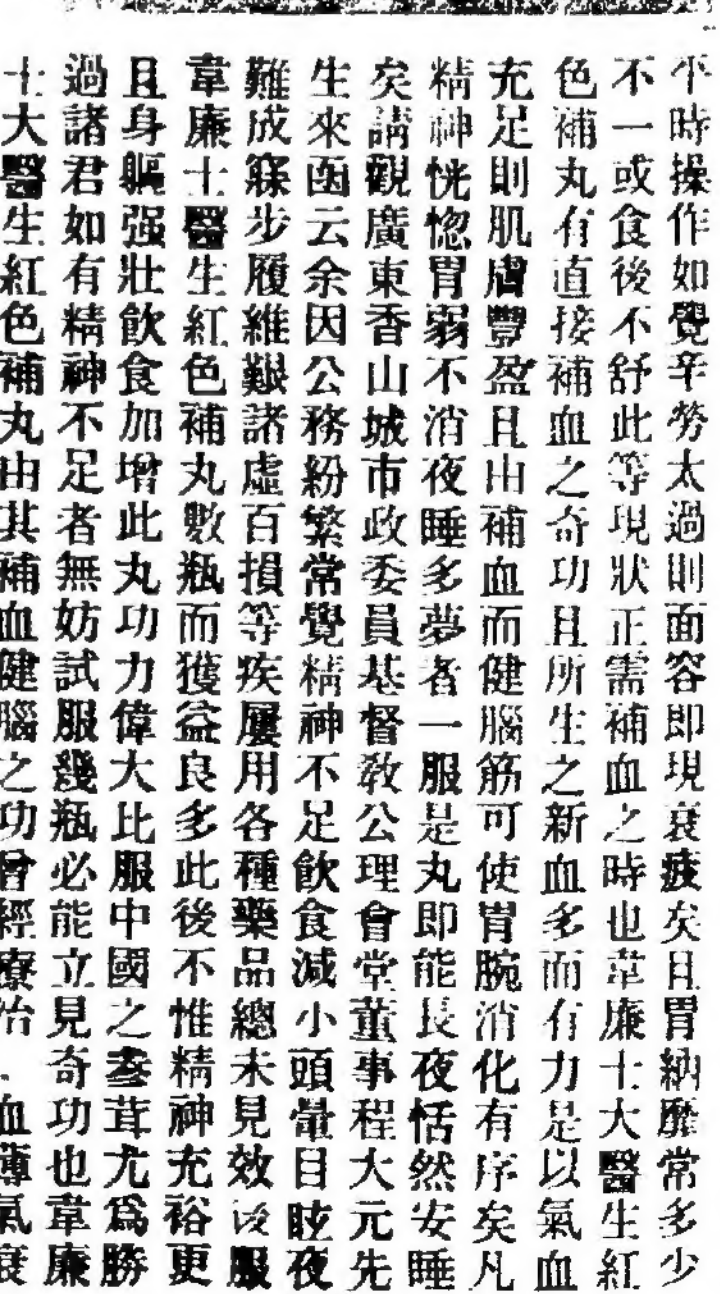 平時操作如覺辛勞太過則面容即現衰疲矣且胃納靡常多少
不一或食後不舒此等現狀正需補血之時也韋廉士大醫生紅
色補丸有直接補血之奇功且所生之新血多而有力是以氣血
充足則肌膚豐盈且由補血而健腦筋可使胃腕消化有序矣凡
精神恍惚胃弱不消夜睡多夢者一服是丸即能長夜恬然安睡
矣請觀廣東香山城市政委員基督教公理會堂董事程大元先
生來函云余因公務紛繁常覺精神不足飲食減小頭暈目眩夜
難成寐步履維艱諸虛百損等疾屢用各種藥品總未見效後服
韋廉士醫生紅色補丸數瓶而獲益良多此後不惟精神充裕更
且身軀强壯飲食加增此丸功力偉大比服中國之參茸尤爲勝
過諸君如有精神不足者無妨試服幾瓶必能立見奇功也韋廉
士大醫生紅色補丸由其補血健腦之功曾經療治 血薄氣衰